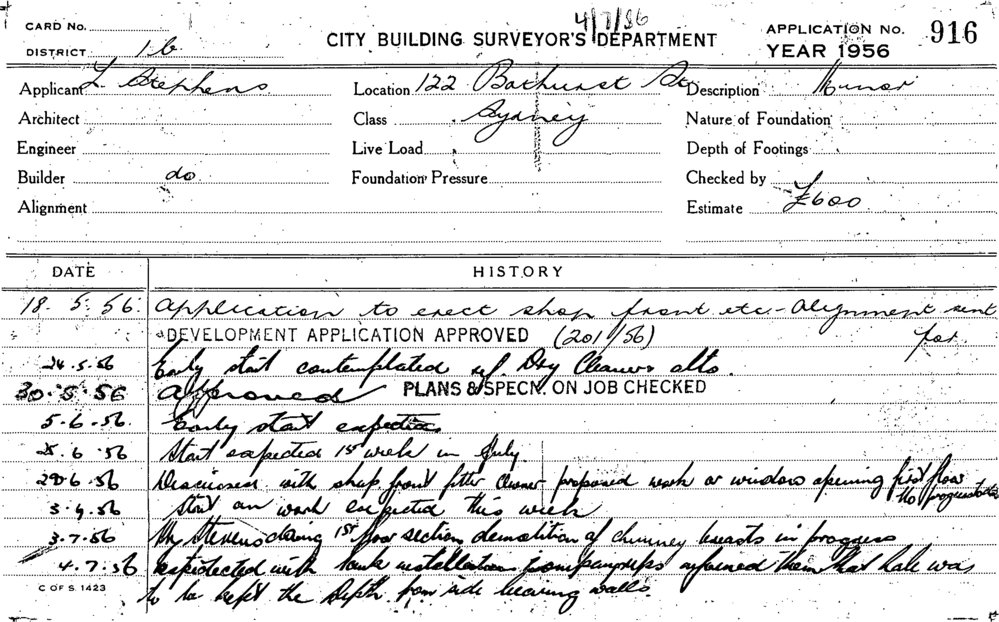 4/7/56
CARD No.
DISTRICT 1b
CITY BUILDING SURVEYOR'S DEPARTMENT
APPLICATION No. 916
YEAR 1956
Applicant L. Stephens
Location 122 Bathurst St.
Description Minor
Architect
Class Sydney
Nature of Foundation
Engineer
Live Load
Depth of Footings
Builder do
Foundation Pressure
Checked by
Alignment
Estimate £600
DATE HISTORY
18. 5. 56. Application to erect shop front etc. - Alignment sent
for
DEVELOPMENT APPLICATION APPROVED (201/56)
24.5.56 Early start contemplated Dry Cleaner alto.
30.5.56 Approved PLANS & SPECN. ON JOB CHECKED
5.6.56. Early start
25.6.56 Start expected 1st week in July
29.6.56 Discussed with shop front fitter proposed work or window opening first floor
No progress
56 Start on work expected this week
3.7.56 1st floor section demolition of chimney breasts in progress
4.7.56 with tank installation informed them that hole was
to be kept the depth from side bearing walls.
C OF S. 1423